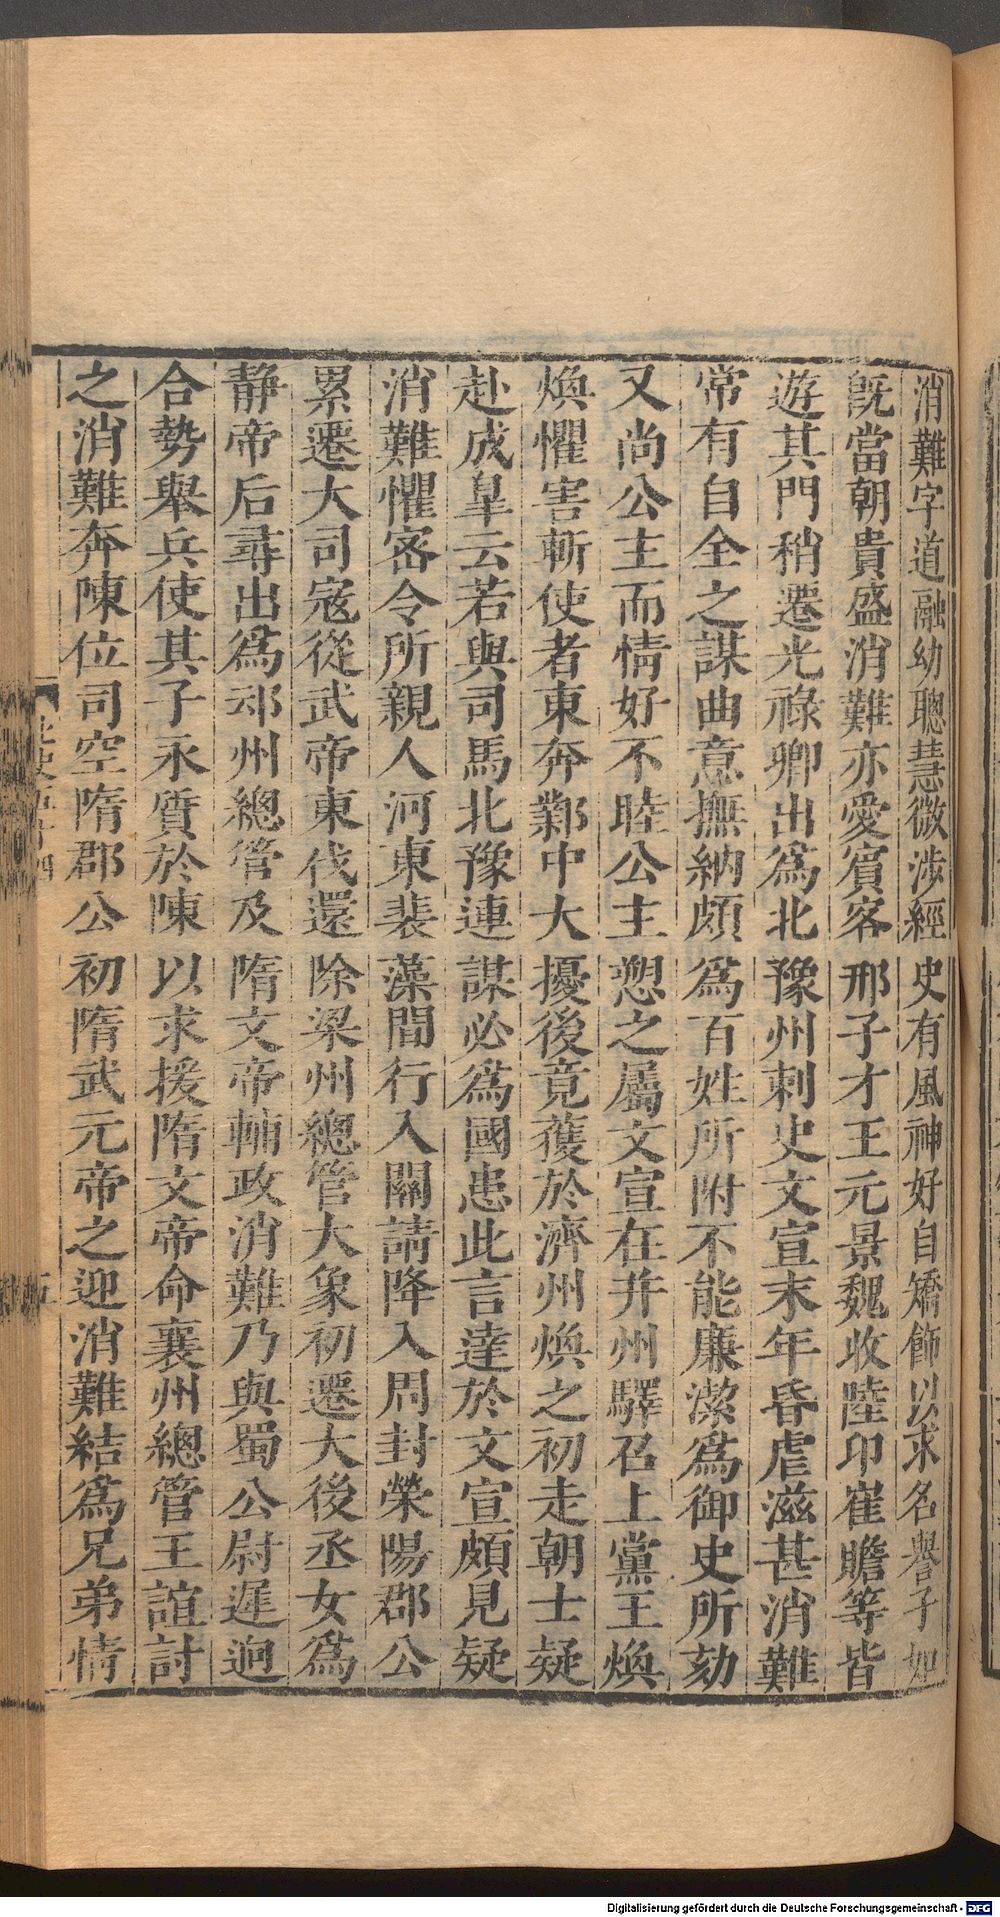 消難字道融幼聰慧微涉經史有風神好自矯飾以求名譽子如
旣當朝貴盛消難亦愛賓客邢子才王元景魏收陸卬崔贍等皆
遊其門稍遷光祿卿出爲北豫州刺史文宣末年昏虐滋甚消難
常有自全之謀曲意撫納頗爲百姓所附不能廉潔爲御史所劾
又尚公主而情好不睦公主愬之屬文宣在幷州驛召上黨王煥
煥懼害斬使者東奔鄴中大擾後竟獲於濟州煥之初走朝士疑
赴成皐云若與司馬北豫連謀必爲國患此言達於文宣頗見疑
消難懼密令所親人河東裴藻間行入關請降入周封滎陽郡公
累遷大司寇從武帝東伐還除梁州總管大象初遷大後丞女爲
静帝后尋出爲䢴州總管及隋文帝輔政消難乃與蜀公尉遲迥
合勢舉兵使其子永質於陳以求援隋文帝命襄州總管王誼討
之消難奔陳位司空隋郡公初隋武元帝之迎消難結爲兄弟情
北史五十四
五
Digitalisierung gefördert durch die Deutsche Forschungsgemeinschaft - DFG